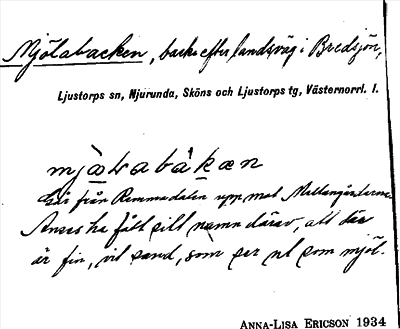 Mjölabacken, backe efter landsväg i Bredsjön,
Ljustorps sn, Njurunda, Sköns och Ljustorps tg, Västernorrl. l.
mjäɷlabàkæn
Går från Remmadalen upp mot Mellangårdarna.
Anses ha fått sitt namn därav, att där
är fin, vit sand, som ser ut som mjöl.
ANNA-LISA ERICSON 1934